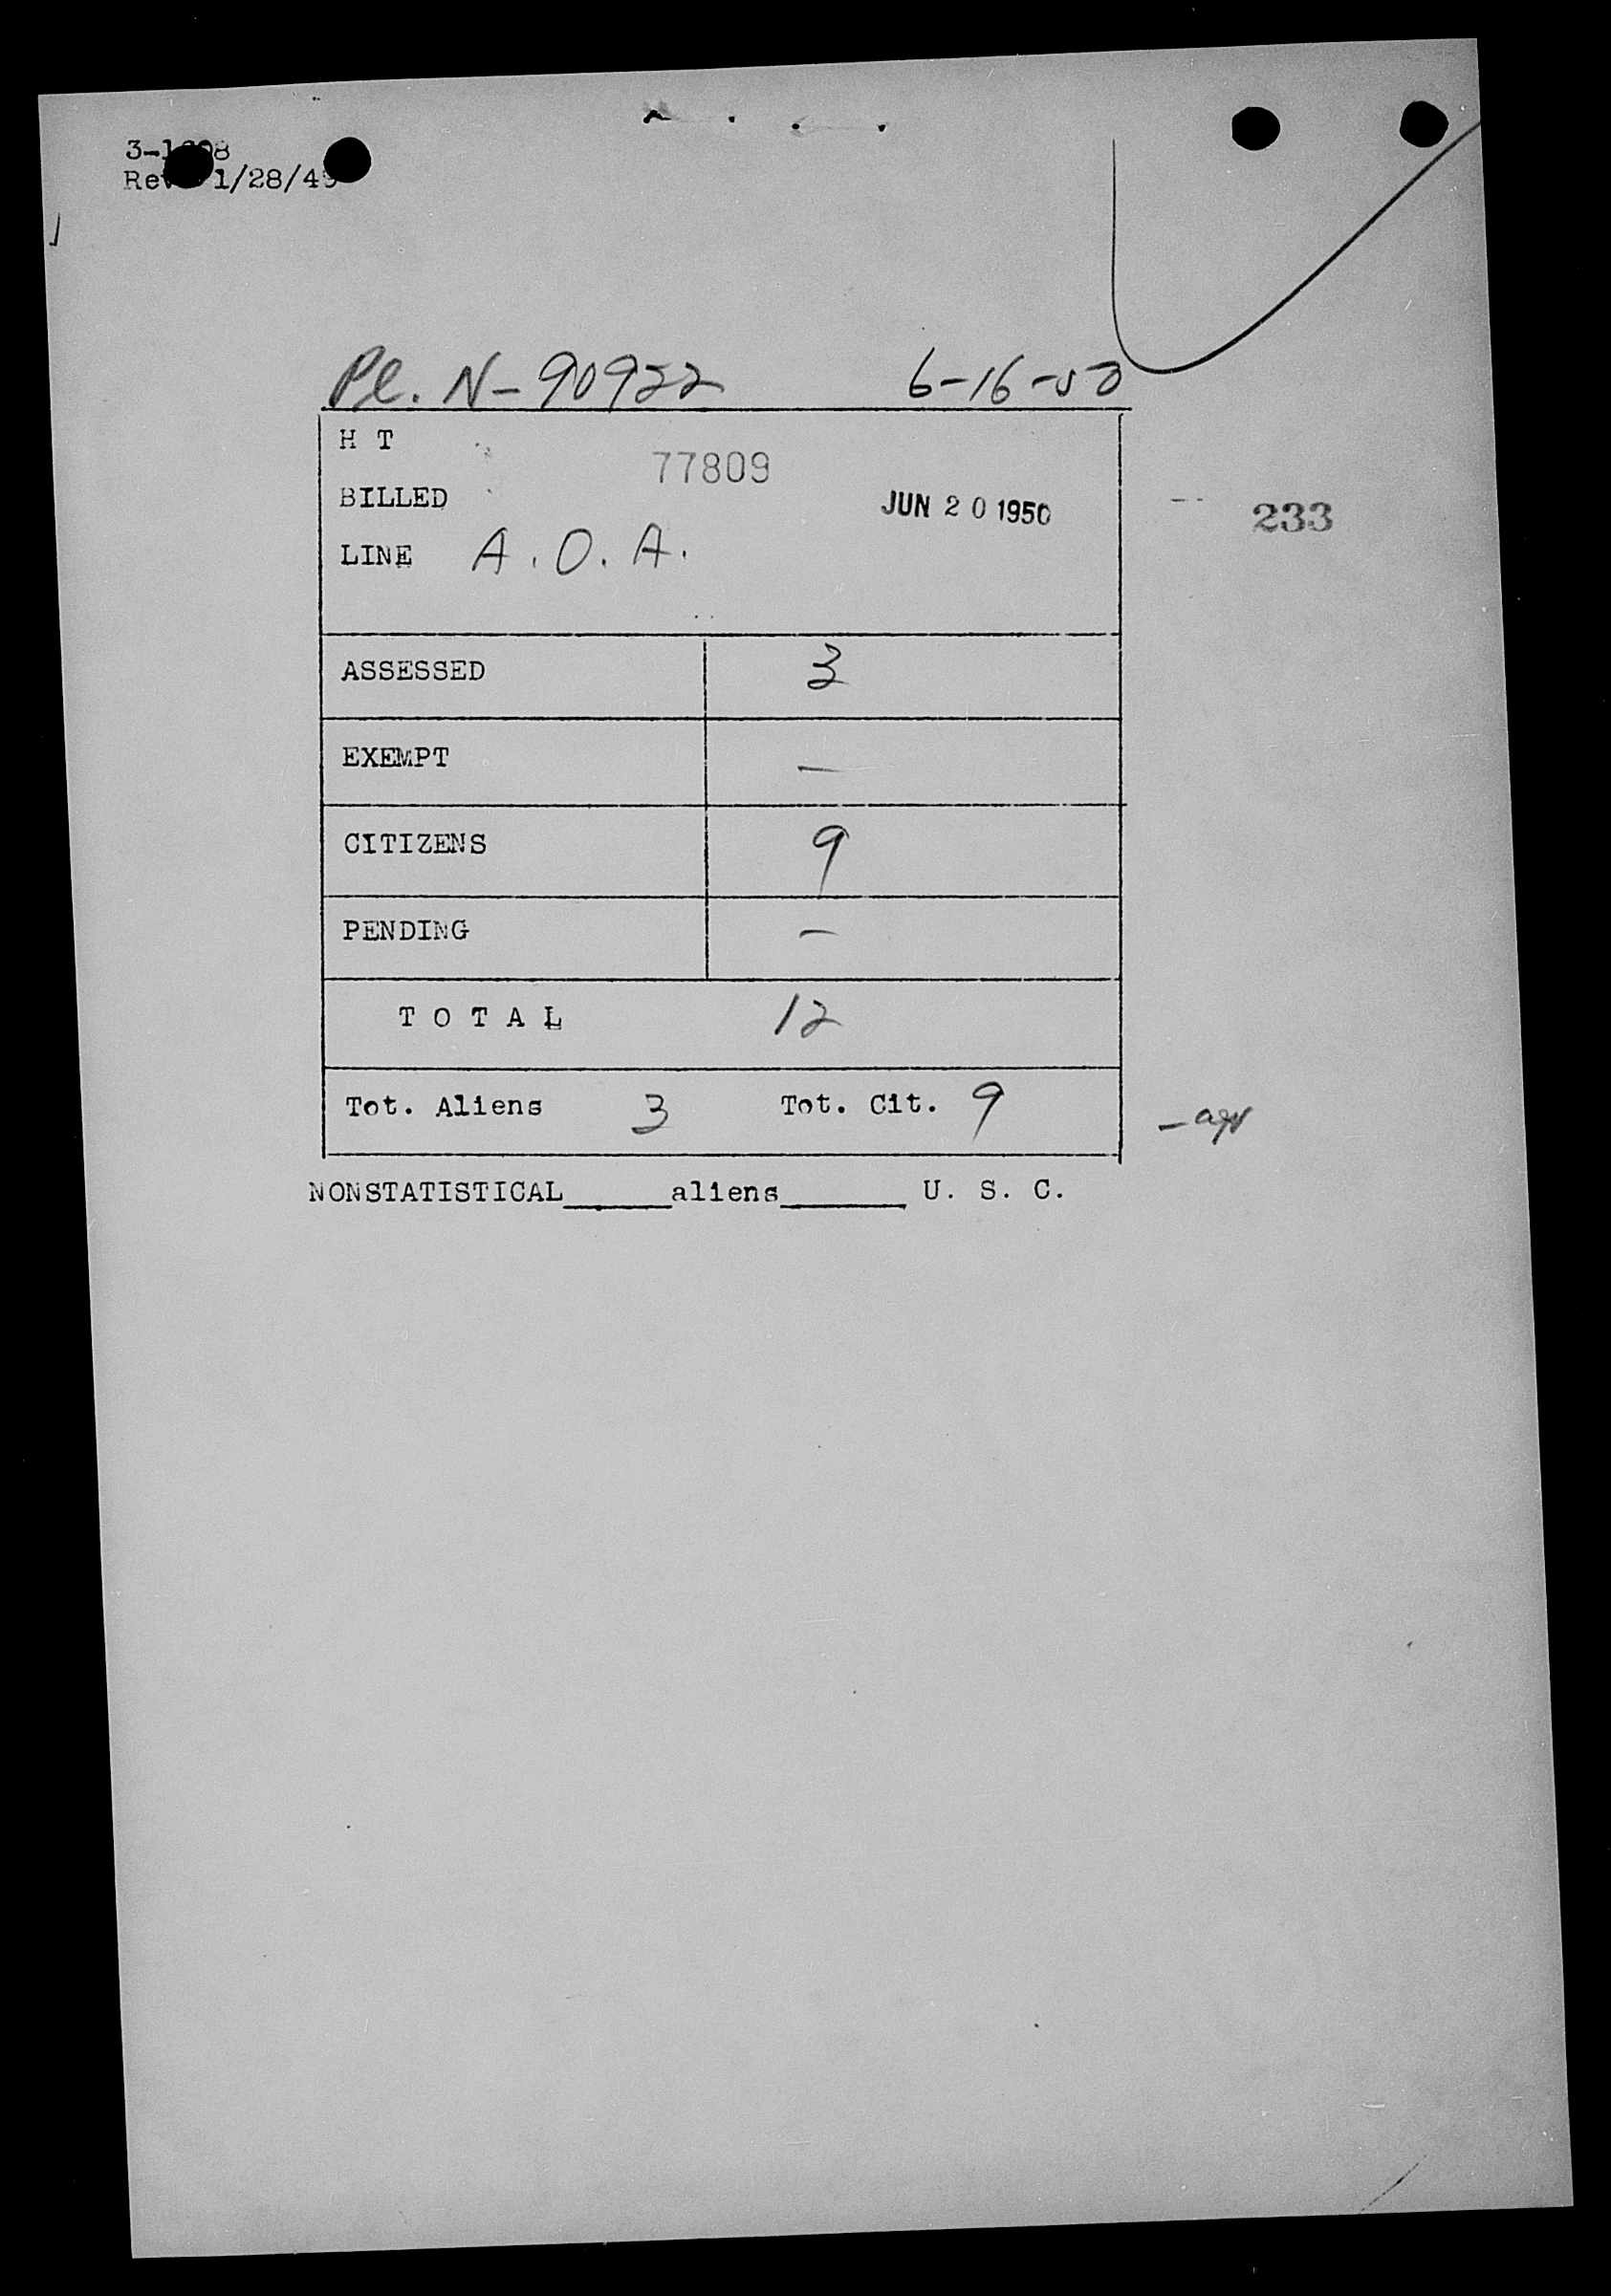 Rev. 1/28/49
Pl. N-90922 6-16-50
H T
77809
BILLED
JUN 20 1950
233
LINE A.O.A.
ASSESSED 3
EXEMPT —
CITIZENS 9
PENDING —
TOTAL 12
Tot. Aliens 3 Tot. Cit. 9
NONSTATISTICAL______aliens_______ U. S. C.